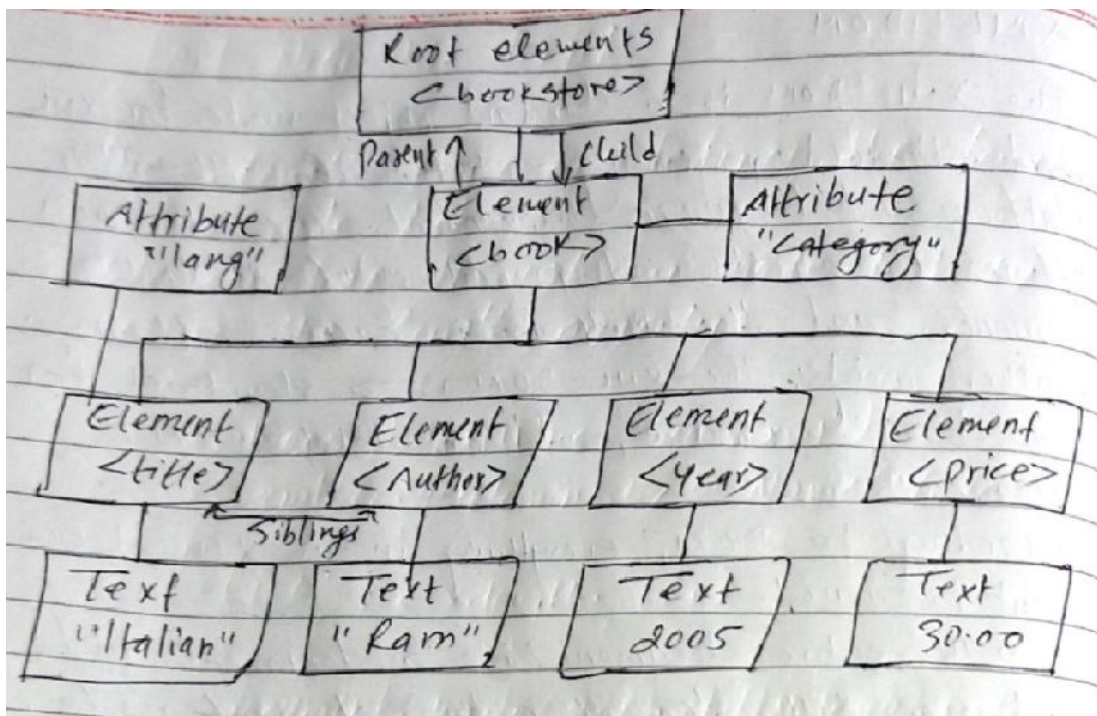 Root elements
<bookstore>
Parent
Child
Attribute
"lang"
Element
<book>
Attribute
"Category"
Element
<title>
Element
<Author>
Element
<Year>
Element
<Price>
Siblings
Text
"Italian"
Text
"Ram"
Text
2005
Text
30.00